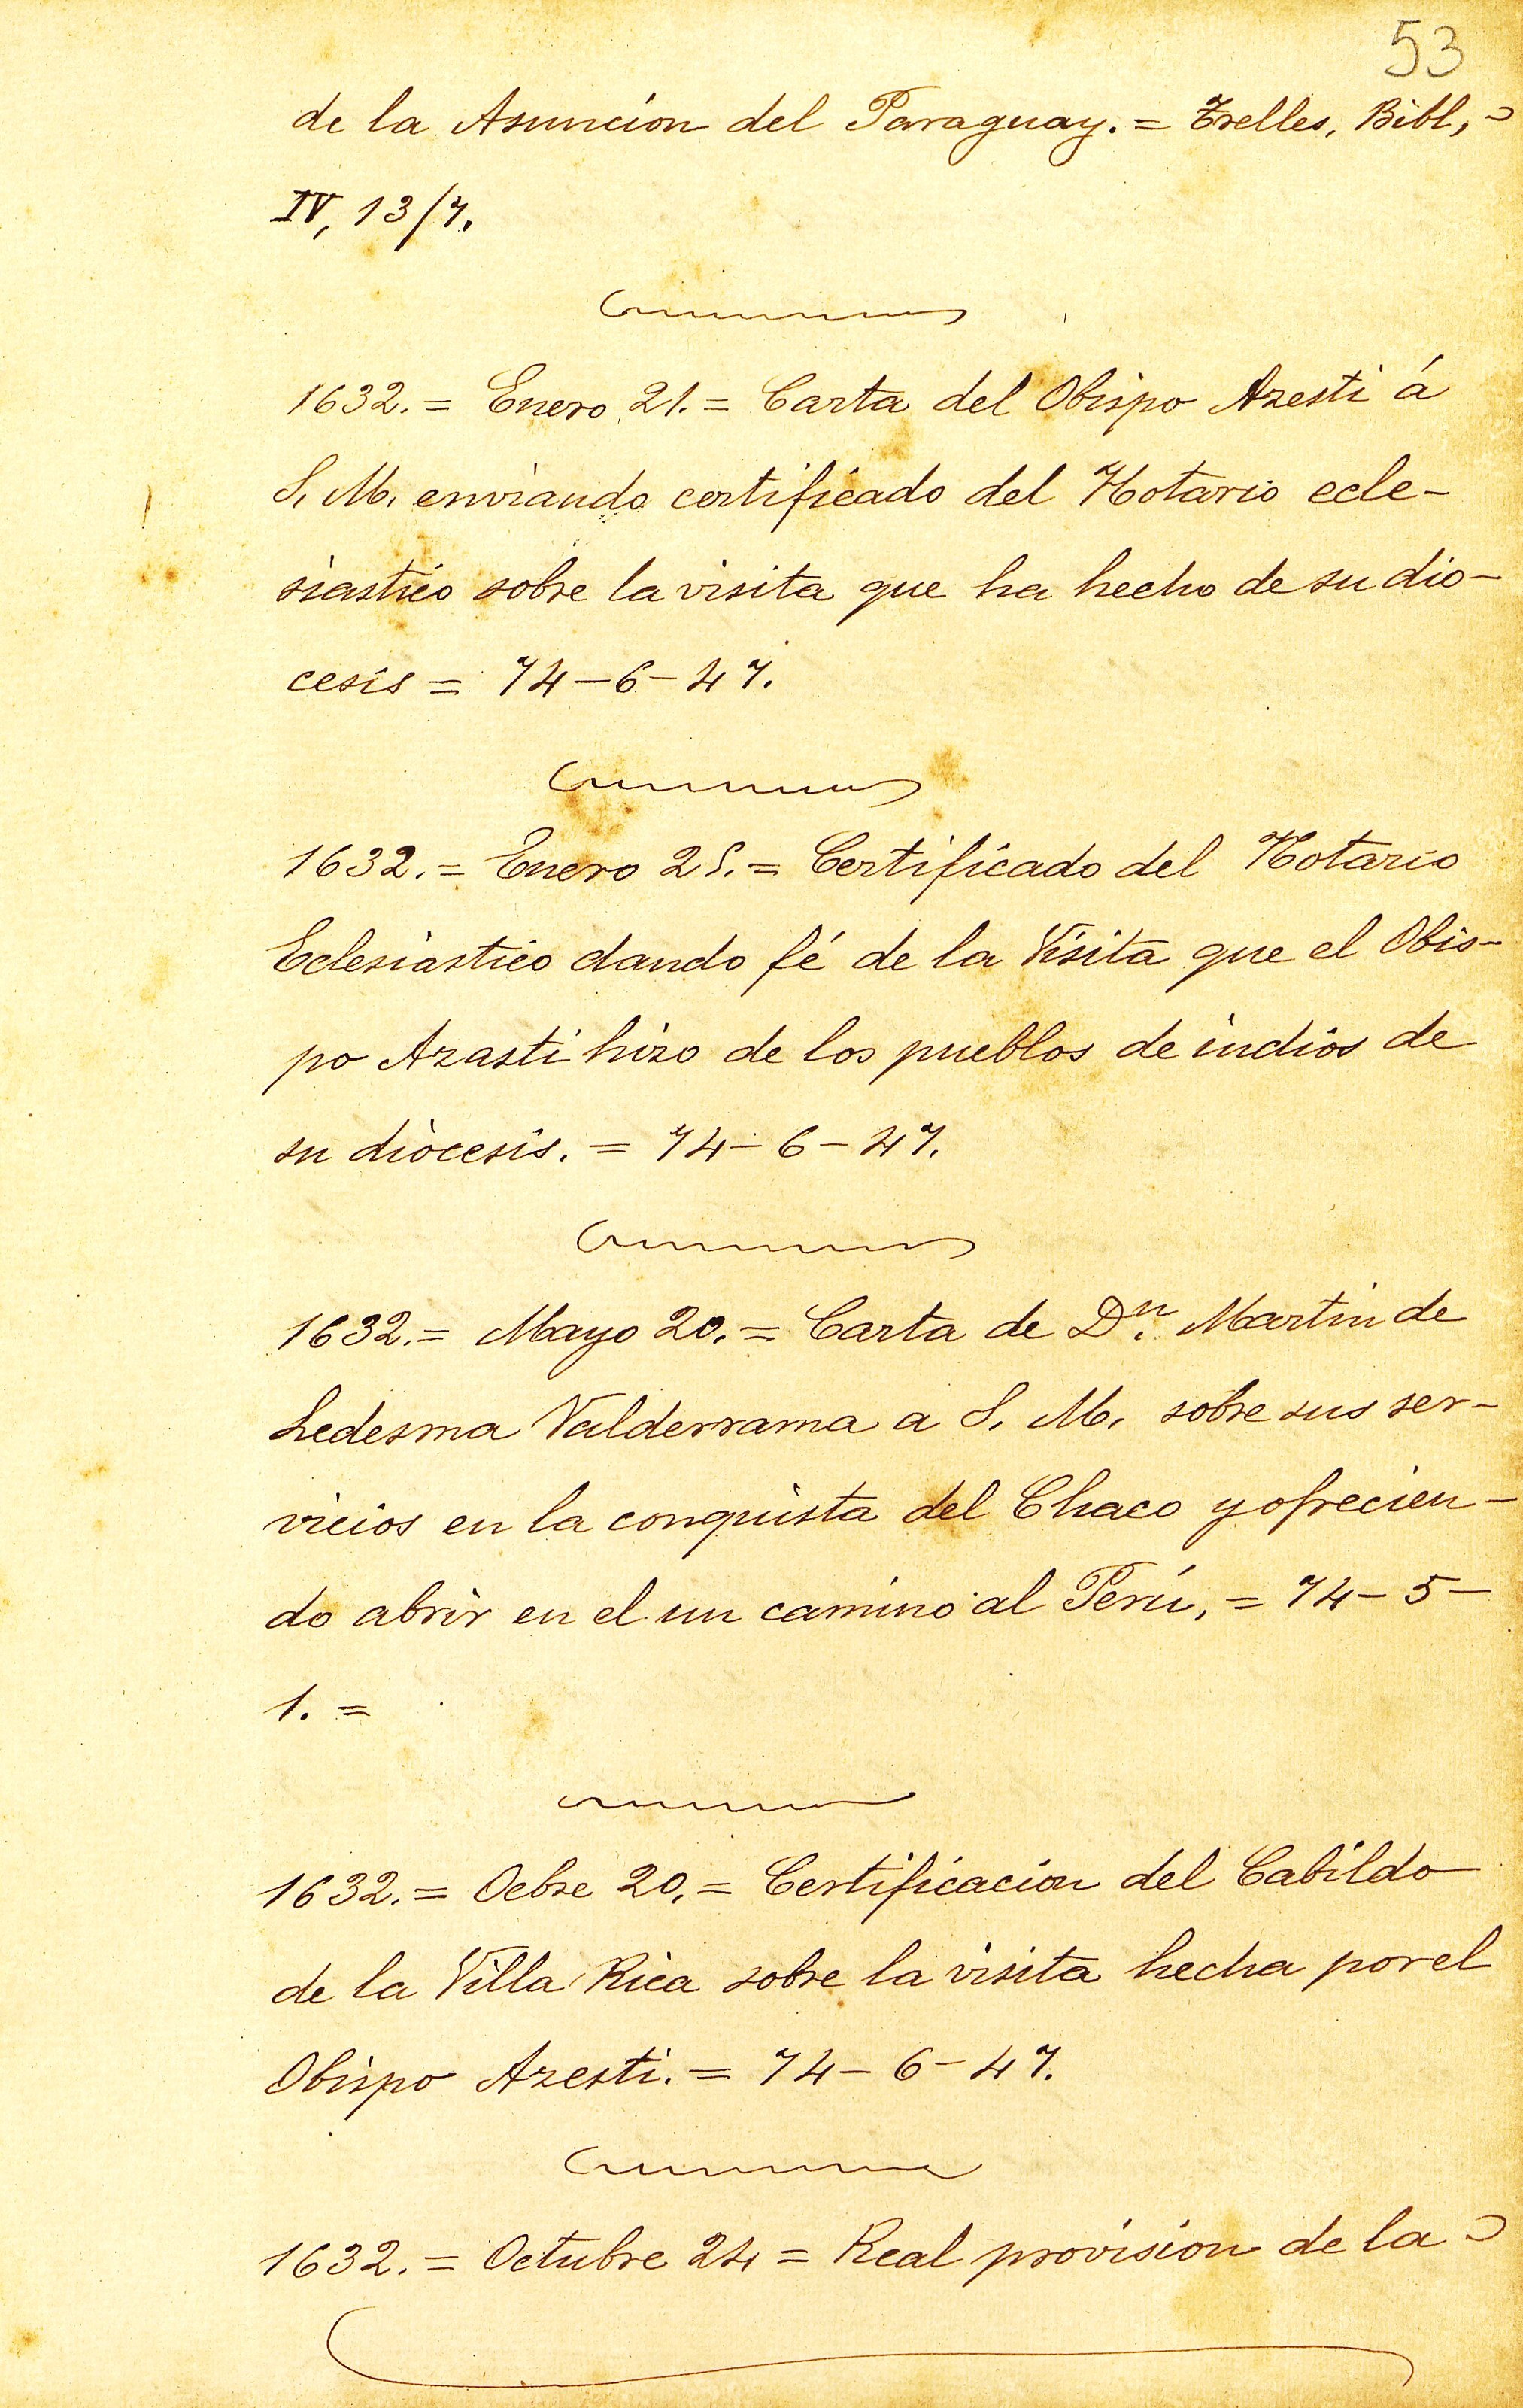 53
de la Asuncion del Paraguay. = Trelles, Bibl,
IV, 13/7.
1632. = Enero 21. = Carta del Obispo Aresti á
S. M. enviando certificado del Notario ecle-
siastico sobre la visita que ha hecho de su dio-
cesis = 74-6-47.
1632. = Enero 25. = Certificado del Notario
Eclesiastico dando fé de la Visita que el Obis-
po Arasti hizo de los pueblos de indios de
su diocesis. = 74-6-47.
1632. = Mayo 20. = Carta de Dn. Martin de
Ledesma Valderrama a S. M. sobre sus ser-
vicios en la conquista del Chaco y ofrecien-
do abrir en el un camino al Perú, = 74-5-
1. =
1632. = Ocbre 20, = Certificacion del Cabildo
de la Villa Rica sobre la visita hecha por el
Obispo Aresti. = 74-6-47.
1632. = Octubre 24 = Real provision de la